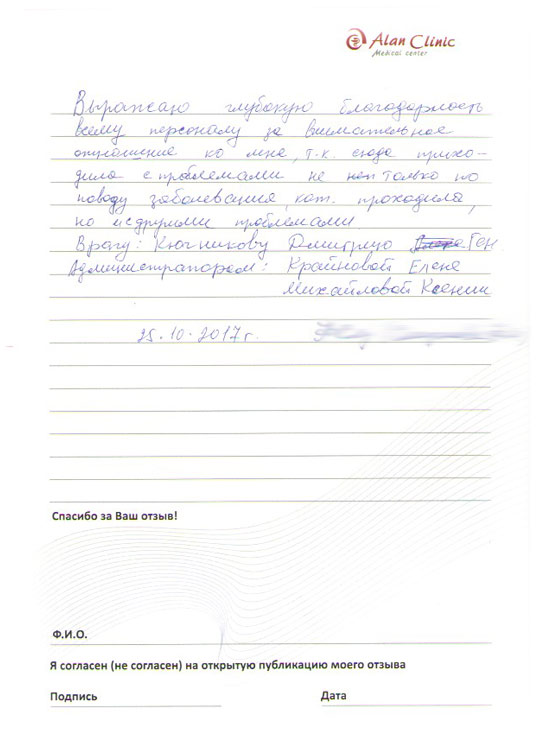 Alan Clinic
Medical center
Выражаю глубокую благодарность
всему персоналу за внимательное
отношение ко мне, т.к. сюда прихо-
дила с проблемами не только по
поводу заболевания, кот. проходила,
но и с другими проблемами.
Врачу: Ключникову Дмитрию Ген
Администраторам: Крайновой Елене
Михайловой Ксении
25.10.2017 г.
Спасибо за Ваш отзыв!
Ф.И.О.
Я согласен (не согласен) на открытую публикацию моего отзыва
Подпись Дата